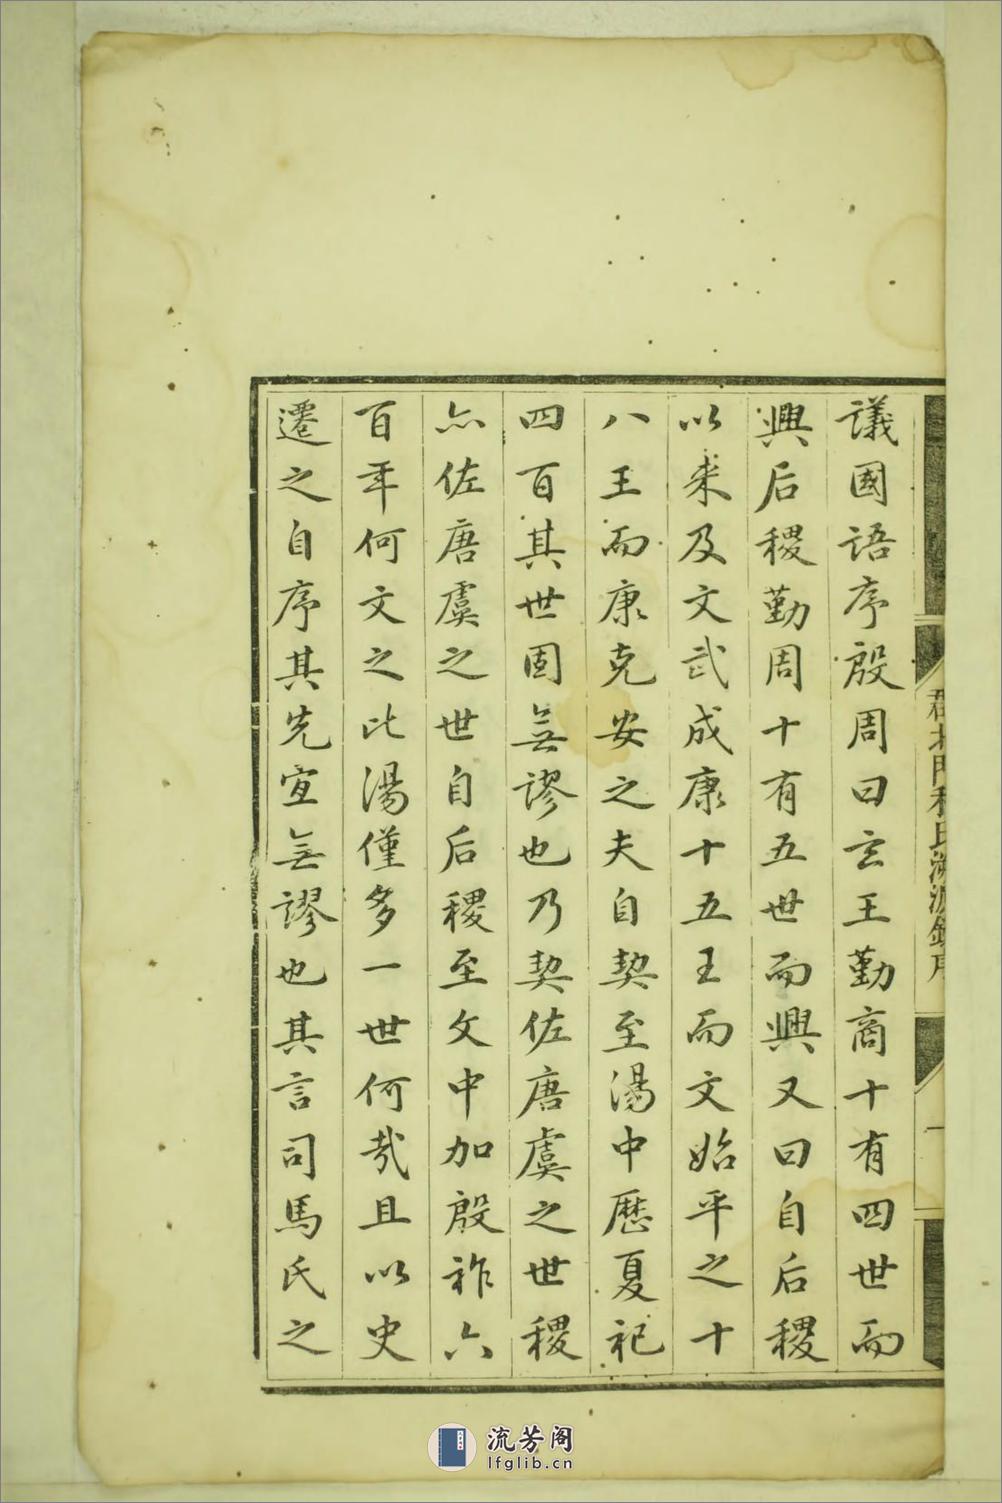 議國語序殷周曰玄王勤商十有四世而
興后稷勤周十有五世而興又曰自后稷
以来及文武成康十五王而文始平之十
八王而康克安之夫自契至湯中歷夏祀
四百其世固無謬也乃契佐唐虞之世稷
亦佐唐虞之世自后稷至文中加殷祚六
百年何文之比湯僅多一世何哉且以史
遷之自序其先宜無謬也其言司馬氏之
北門
氏溯源
一
流芳阁
lfglib.cn